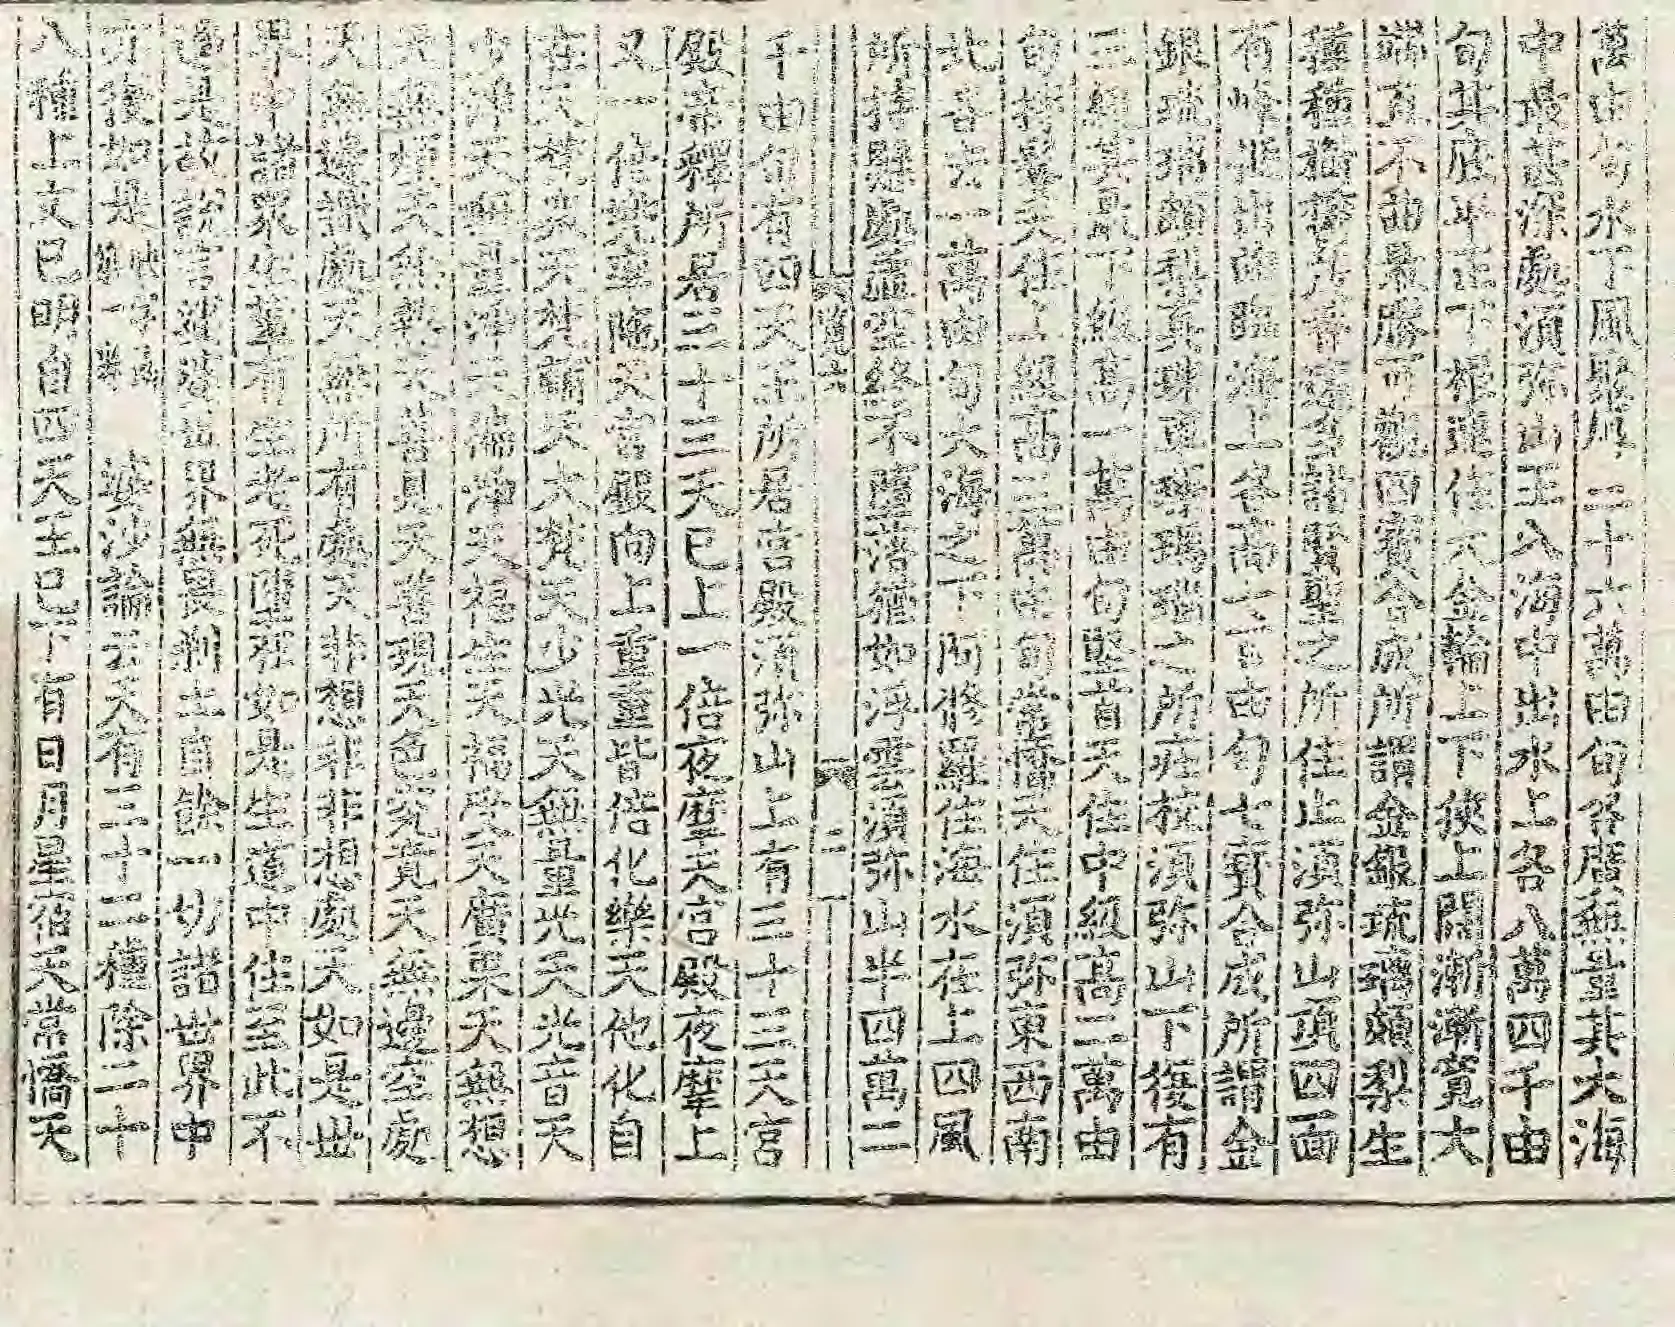 萬由旬水下風聚厚三十六萬由旬系居無量其大海
中最極深處須弥山王入海中出水上各八萬四千由
旬其底平正下根連住大金輪上下狹上闊漸漸寬大
端直不曲最勝可觀四寶合成所謂金銀琉璃頗梨生
種種樹 諸賢聖之所住止須弥山頂四面
有峰 海上各高七百由旬七寶合成所謂金
銀琉璃 真珠車磲瑪瑙之所庄校須弥山下復有
三級 最下級高一萬由旬堅首天住中級高二萬由
旬持鬘天住上級高三萬由旬常憍天住須弥東西南
北 萬由旬大海之下阿修羅住海水在上四風
所持 虛空終不墮落猶如浮雲須弥山半四萬二
二
千由旬有四天王所居宮殿須弥山上有三十三天宮
殿帝釋所居三十三天已上一倍夜摩天宮殿夜摩上
又一倍兜率陁天宮殿向上重重皆倍化樂天他化自
在天梵衆天梵輔天大梵天少光天無量光天光音天
少淨天無量淨天徧淨天福生天福愛天廣果天無想
天無煩天無熱天善見天善現天色究竟天無邊空處
天無邊識處天無所有處天非想非非想處天如是世
界中諸衆生輩有生老死墮在如是生道中住至此不
過是故 娑婆世界無量剎土自餘一切諸世界中
亦復如是 婆沙論云天有三十二種除二十
八種上文已明四天王已下有日月星宿天常憍天